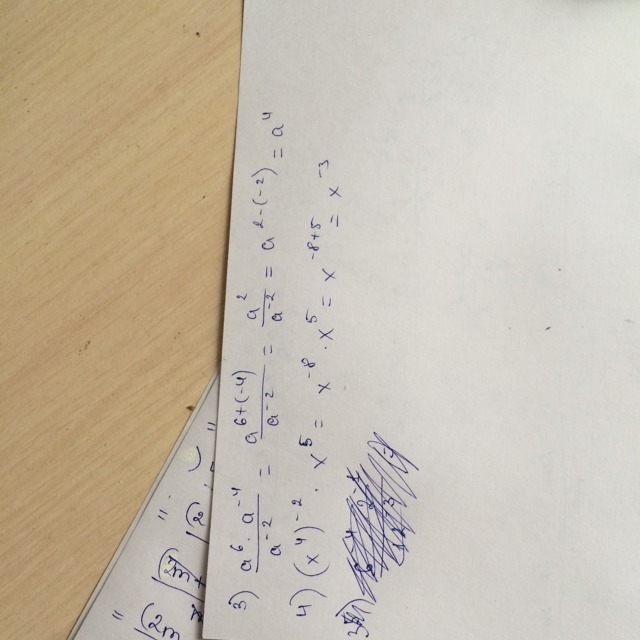 3) \frac{a^6 \cdot a^{-4}}{a^{-2}} = \frac{a^{6+(-4)}}{a^{-2}} = \frac{a^2}{a^{-2}} = a^{2-(-2)} = a^4
4) (x^4)^{-2} \cdot x^5 = x^{-8} \cdot x^5 = x^{-8+5} = x^{-3}